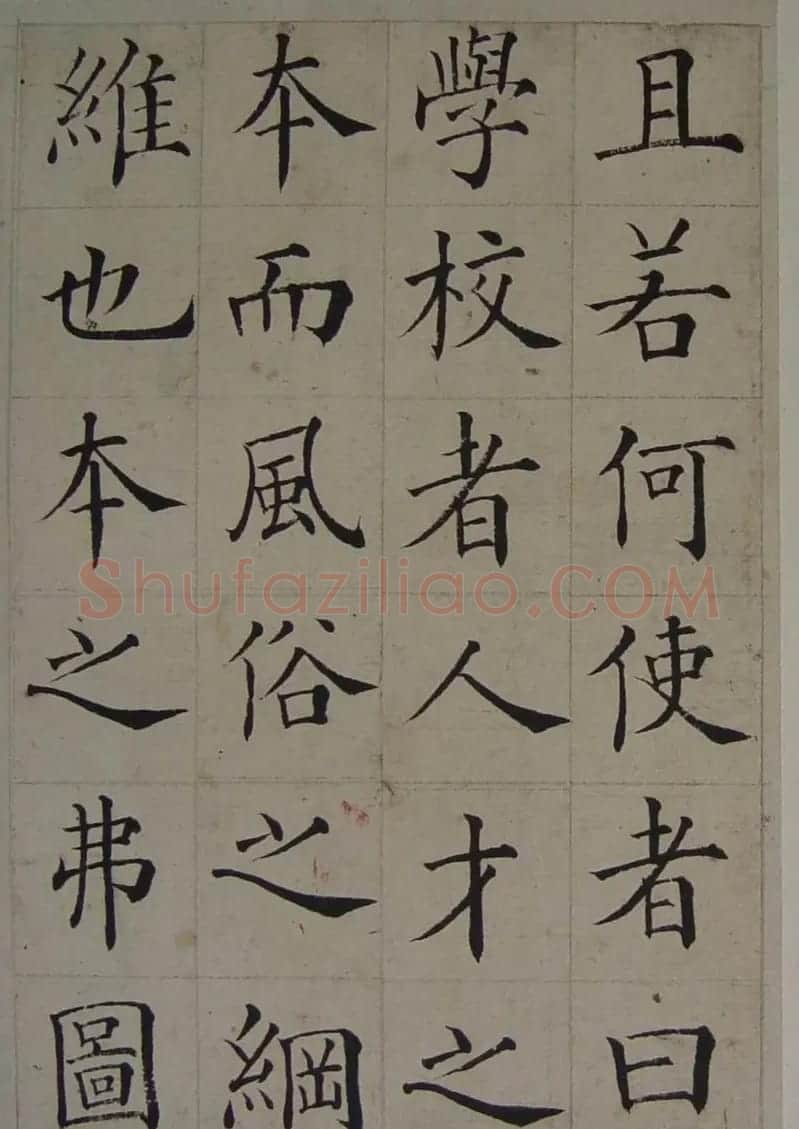 且若何使者曰
學校者人才之
本而風俗之綱
維也本之弗圖
Shufaziliao.COM